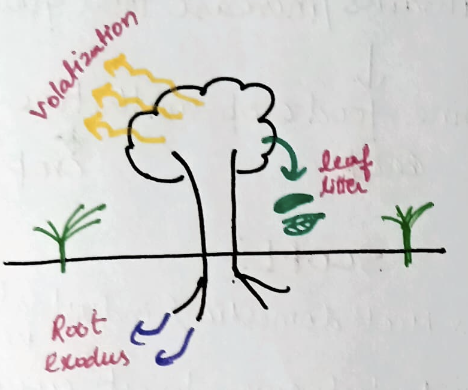 volatization
leaf
litter
Root
exodus